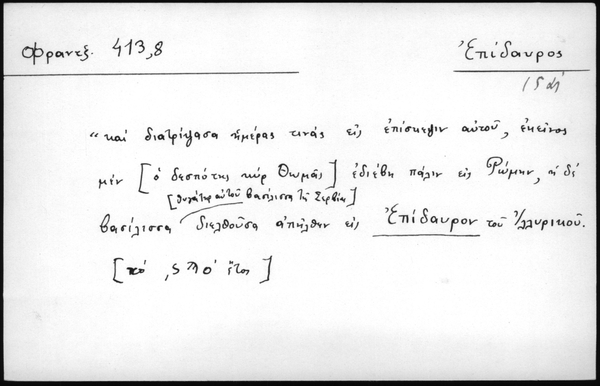 Φραντζ. 413,8
Ἐπίδαυρος
"καὶ διατρίψασα ἡμέρας τινάς εἰς ἐπίσκεψιν αὐτοῦ, ἐκεῖνος
μέν [ὁ δεσπότης κύρ Θωμᾶς] ἐδιέβη πάλιν εἰς Ῥώμην, ἡ δέ
[θυγάτηρ αὐτοῦ βασίλισσα τῆς Σερβίας]
βασίλισσα διελθοῦσα ἀπῆλθεν εἰς Ἐπίδαυρον τοῦ Ἰλλυρικοῦ.
ἔτος]